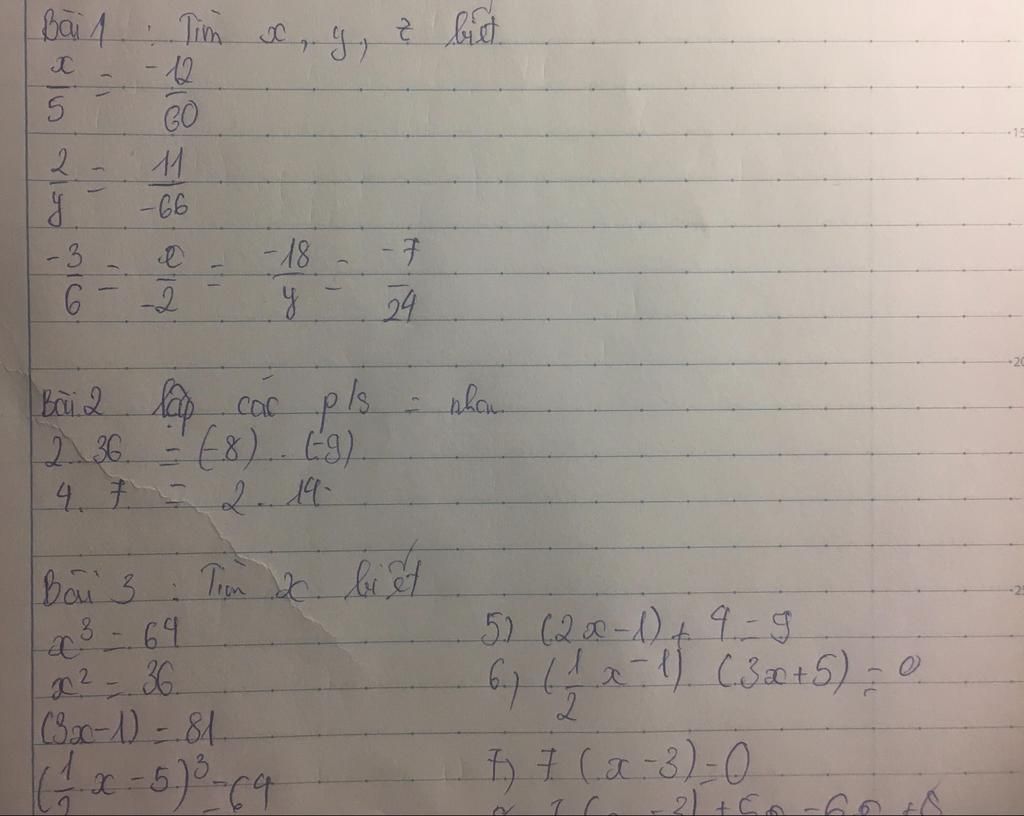 Bài 1 : Tìm x, y, z biết
x/5 = -12/60
2/y = 11/-66
-3/6 = x/-2 = -18/y = -7/24
Bài 2 lập các p/s = nhau
2. 36 = (-8) . (-9)
4. 7 = 2. 14
Bài 3 : Tìm x biết
x³ = 64
x² = 36
(3x-1) = 81
(1/2 x - 5)³ = 64
5) (2x-1) + 4 = 9
6.) (1/2 x - 1) (3x+5) = 0
7) 7 (x-3) = 0